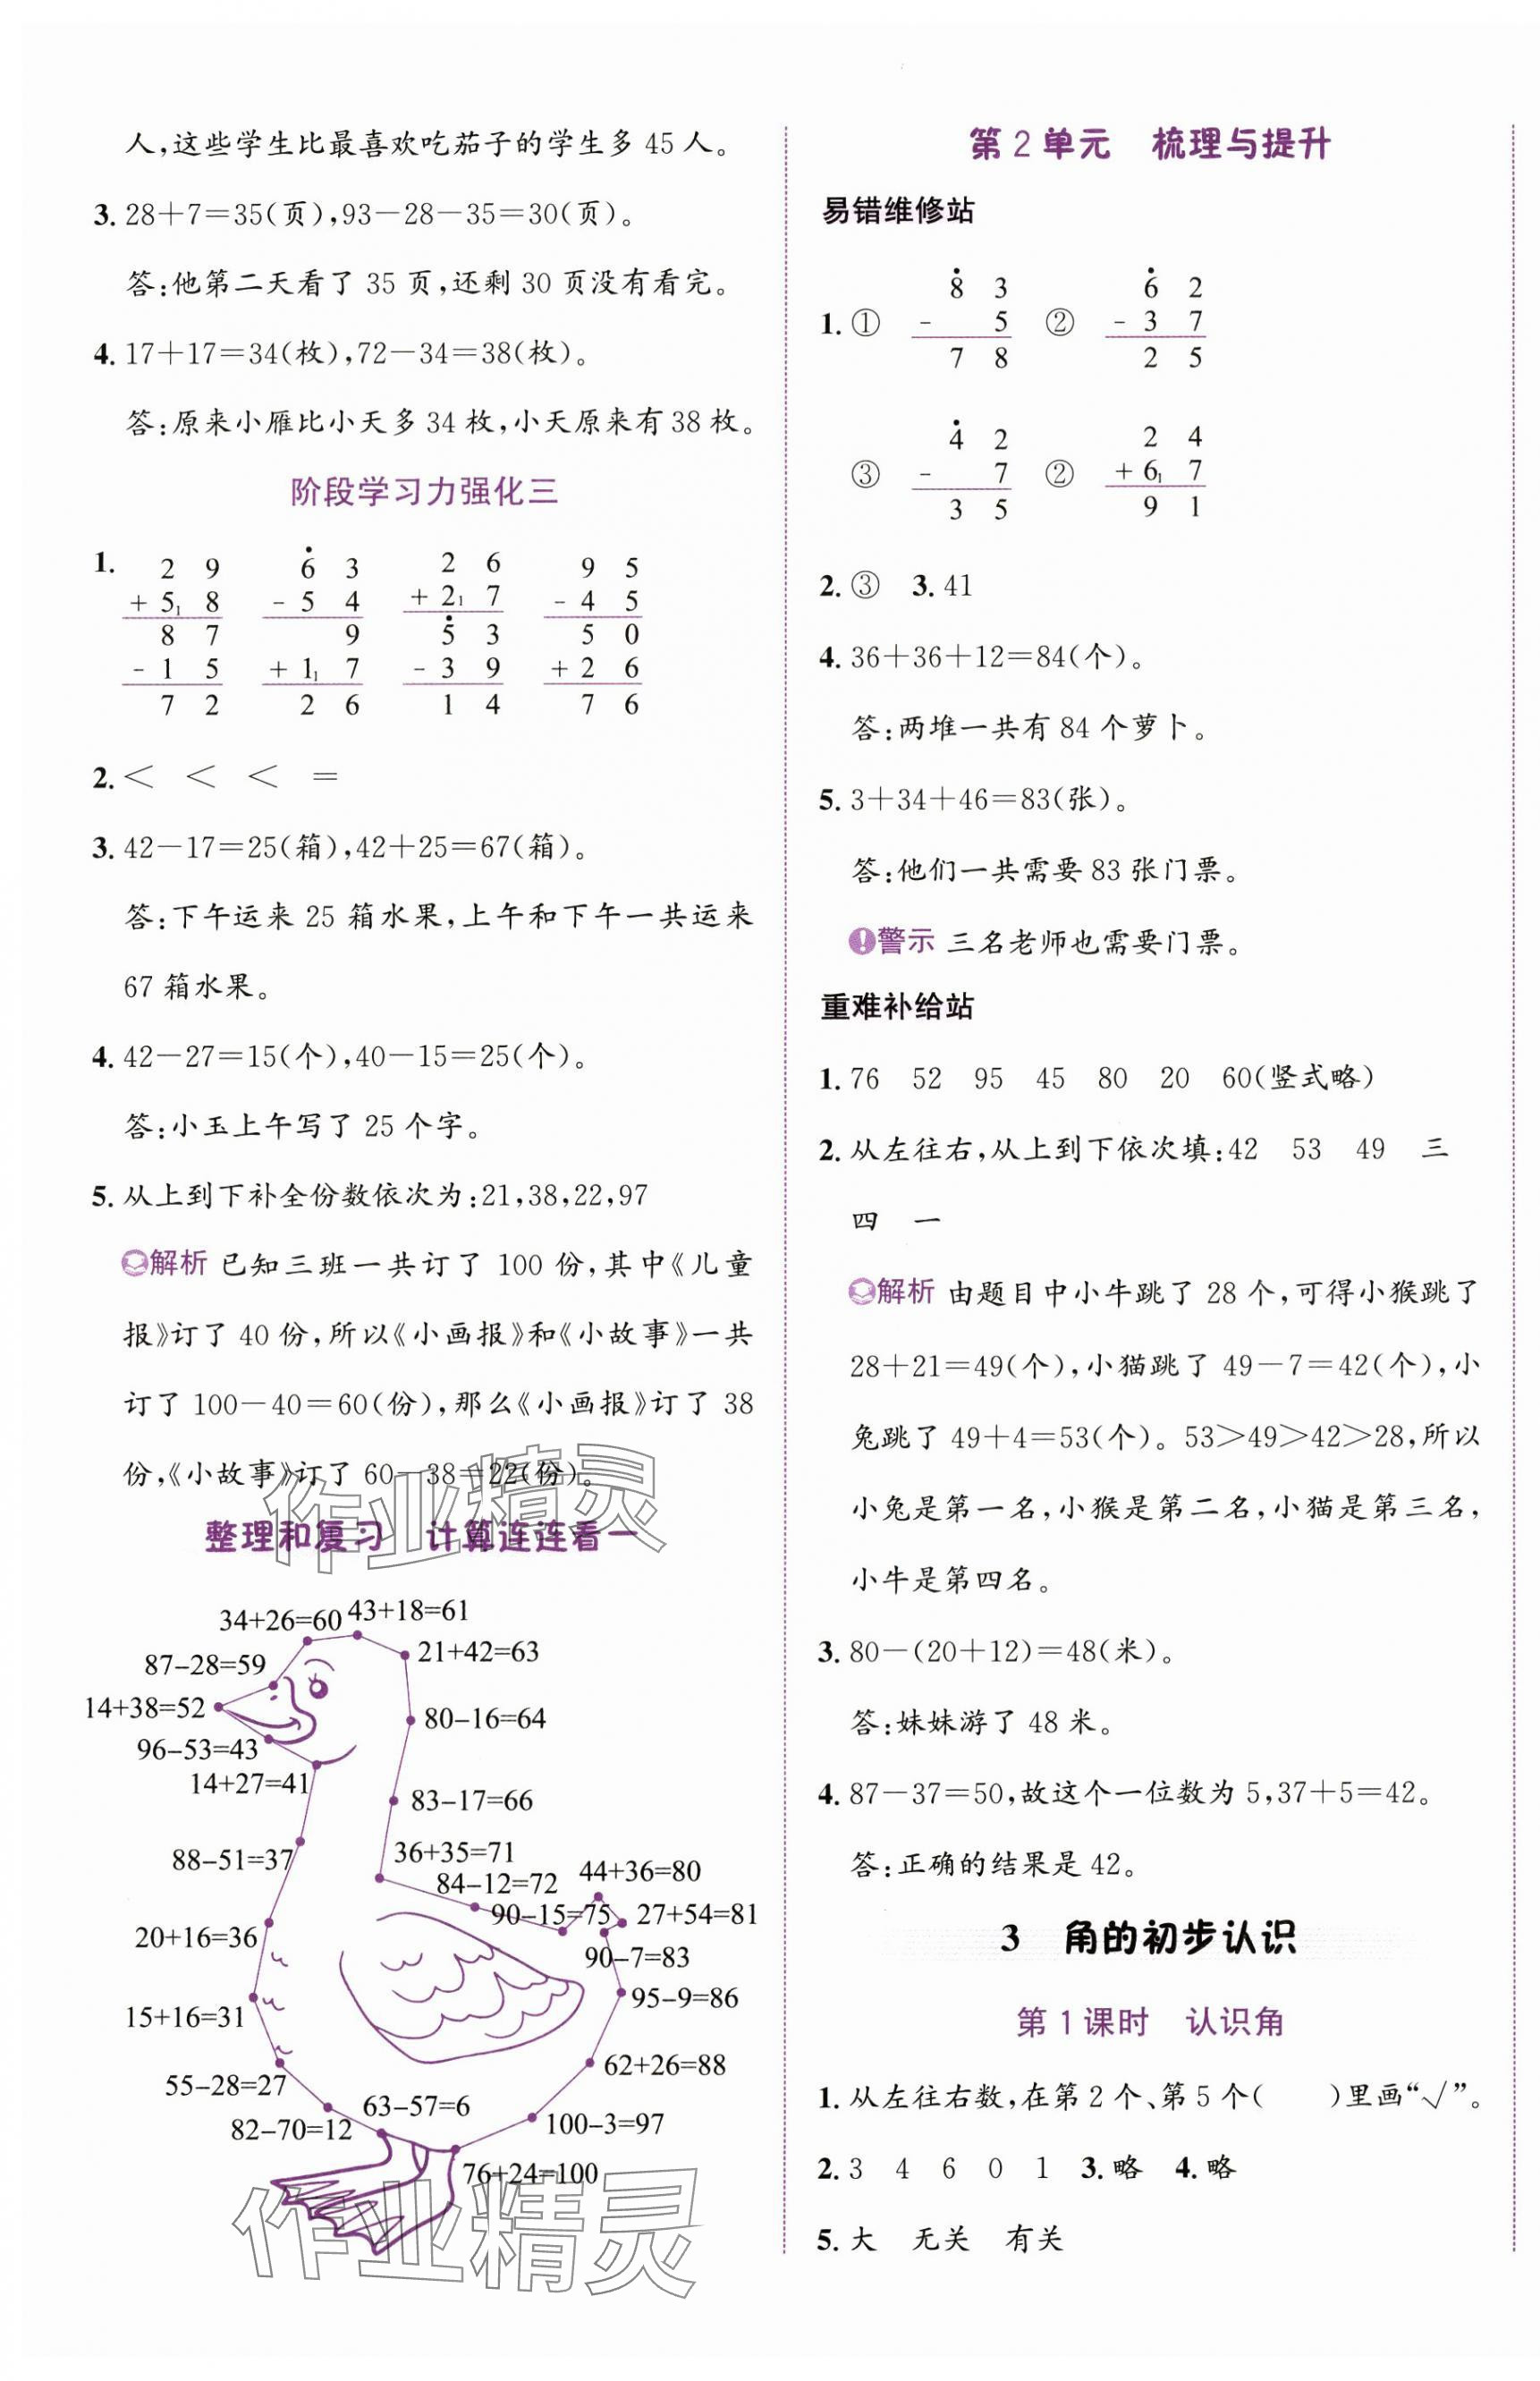 人,这些学生比最喜欢吃茄子的学生多 45 人。
3. 28+7=35(页),93-28-35=30(页)。
答:他第二天看了 35 页,还剩 30 页没有看完。
4. 17+17=34(枚),72-34=38(枚)。
答:原来小雁比小天多 34 枚,小天原来有 38 枚。
阶段学习力强化三
1. 2 9   6 3   2 6   9 5
+ 5₁ 8   - 5 4   + 2₁ 7   - 4 5
8 7   9   5 3   5 0
- 1 5   + 1₁ 7   - 3 9   + 2 6
7 2   2 6   1 4   7 6
2. < < < =
3. 42-17=25(箱),42+25=67(箱)。
答:下午运来 25 箱水果,上午和下午一共运来
67 箱水果。
4. 42-27=15(个),40-15=25(个)。
答:小玉上午写了 25 个字。
5. 从上到下补全份数依次为:21,38,22,97
解析 已知三班一共订了 100 份,其中《儿童
报》订了 40 份,所以《小画报》和《小故事》一共
订了 100-40=60(份),那么《小画报》订了 38
份,《小故事》订了 60-38=22(份)。
作业精灵
整理和复习 计算连连看一
34+26=60 43+18=61
21+42=63
87-28=59
14+38=52
80-16=64
96-53=43
14+27=41
83-17=66
36+35=71
88-51=37
84-12=72 44+36=80
90-15=75 27+54=81
20+16=36
90-7=83
95-9=86
15+16=31
62+26=88
55-28=27
63-57=6
82-70=12
100-3=97
76+24=100
作业精灵
第 2 单元 梳理与提升
易错维修站
8 3   6 2
1. ① - 5 ② - 3 7
7 8   2 5
4 2   2 4
③ - 7 ② + 6₁ 7
3 5   9 1
2. ③ 3. 41
4. 36+36+12=84(个)。
答:两堆一共有 84 个萝卜。
5. 3+34+46=83(张)。
答:他们一共需要 83 张门票。
!警示 三名老师也需要门票。
重难补给站
1. 76 52 95 45 80 20 60(竖式略)
2. 从左往右,从上到下依次填:42 53 49 三
四 一
解析 由题目中小牛跳了 28 个,可得小猴跳了
28+21=49(个),小猫跳了 49-7=42(个),小
兔跳了 49+4=53(个)。53>49>42>28,所以
小兔是第一名,小猴是第二名,小猫是第三名,
小牛是第四名。
3. 80-(20+12)=48(米)。
答:妹妹游了 48 米。
4. 87-37=50,故这个一位数为 5,37+5=42。
答:正确的结果是 42。
3 角的初步认识
第 1 课时 认识角
1. 从左往右数,在第 2 个、第 5 个(  )里画“√”。
2. 3 4 6 0 1 3. 略 4. 略
5. 大 无关 有关